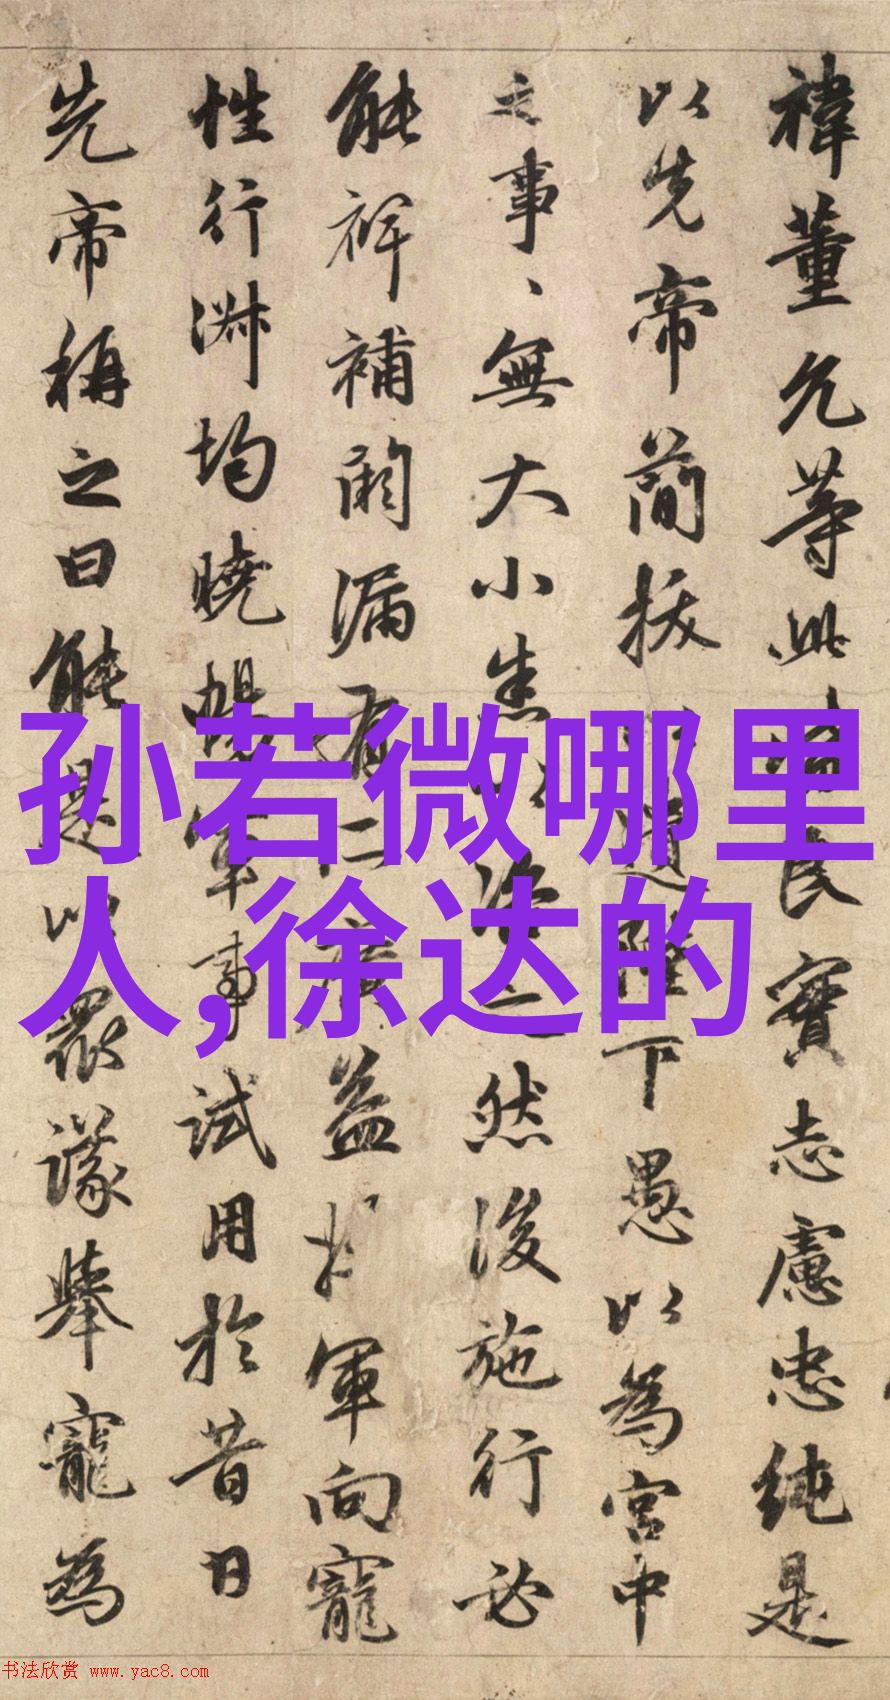 禕董允等此皆良實志慮忠純是
以先帝簡拔以遺陛下愚以為宮中
之事、無大小悉以咨之然後施行必
能裨補闕漏有所廣益將軍向寵
性行淋均曉暢軍事試用於昔日
先帝稱之曰能是以眾議舉寵為
孙若微哪里
人,徐达的
书法欣赏 www.yac8.com